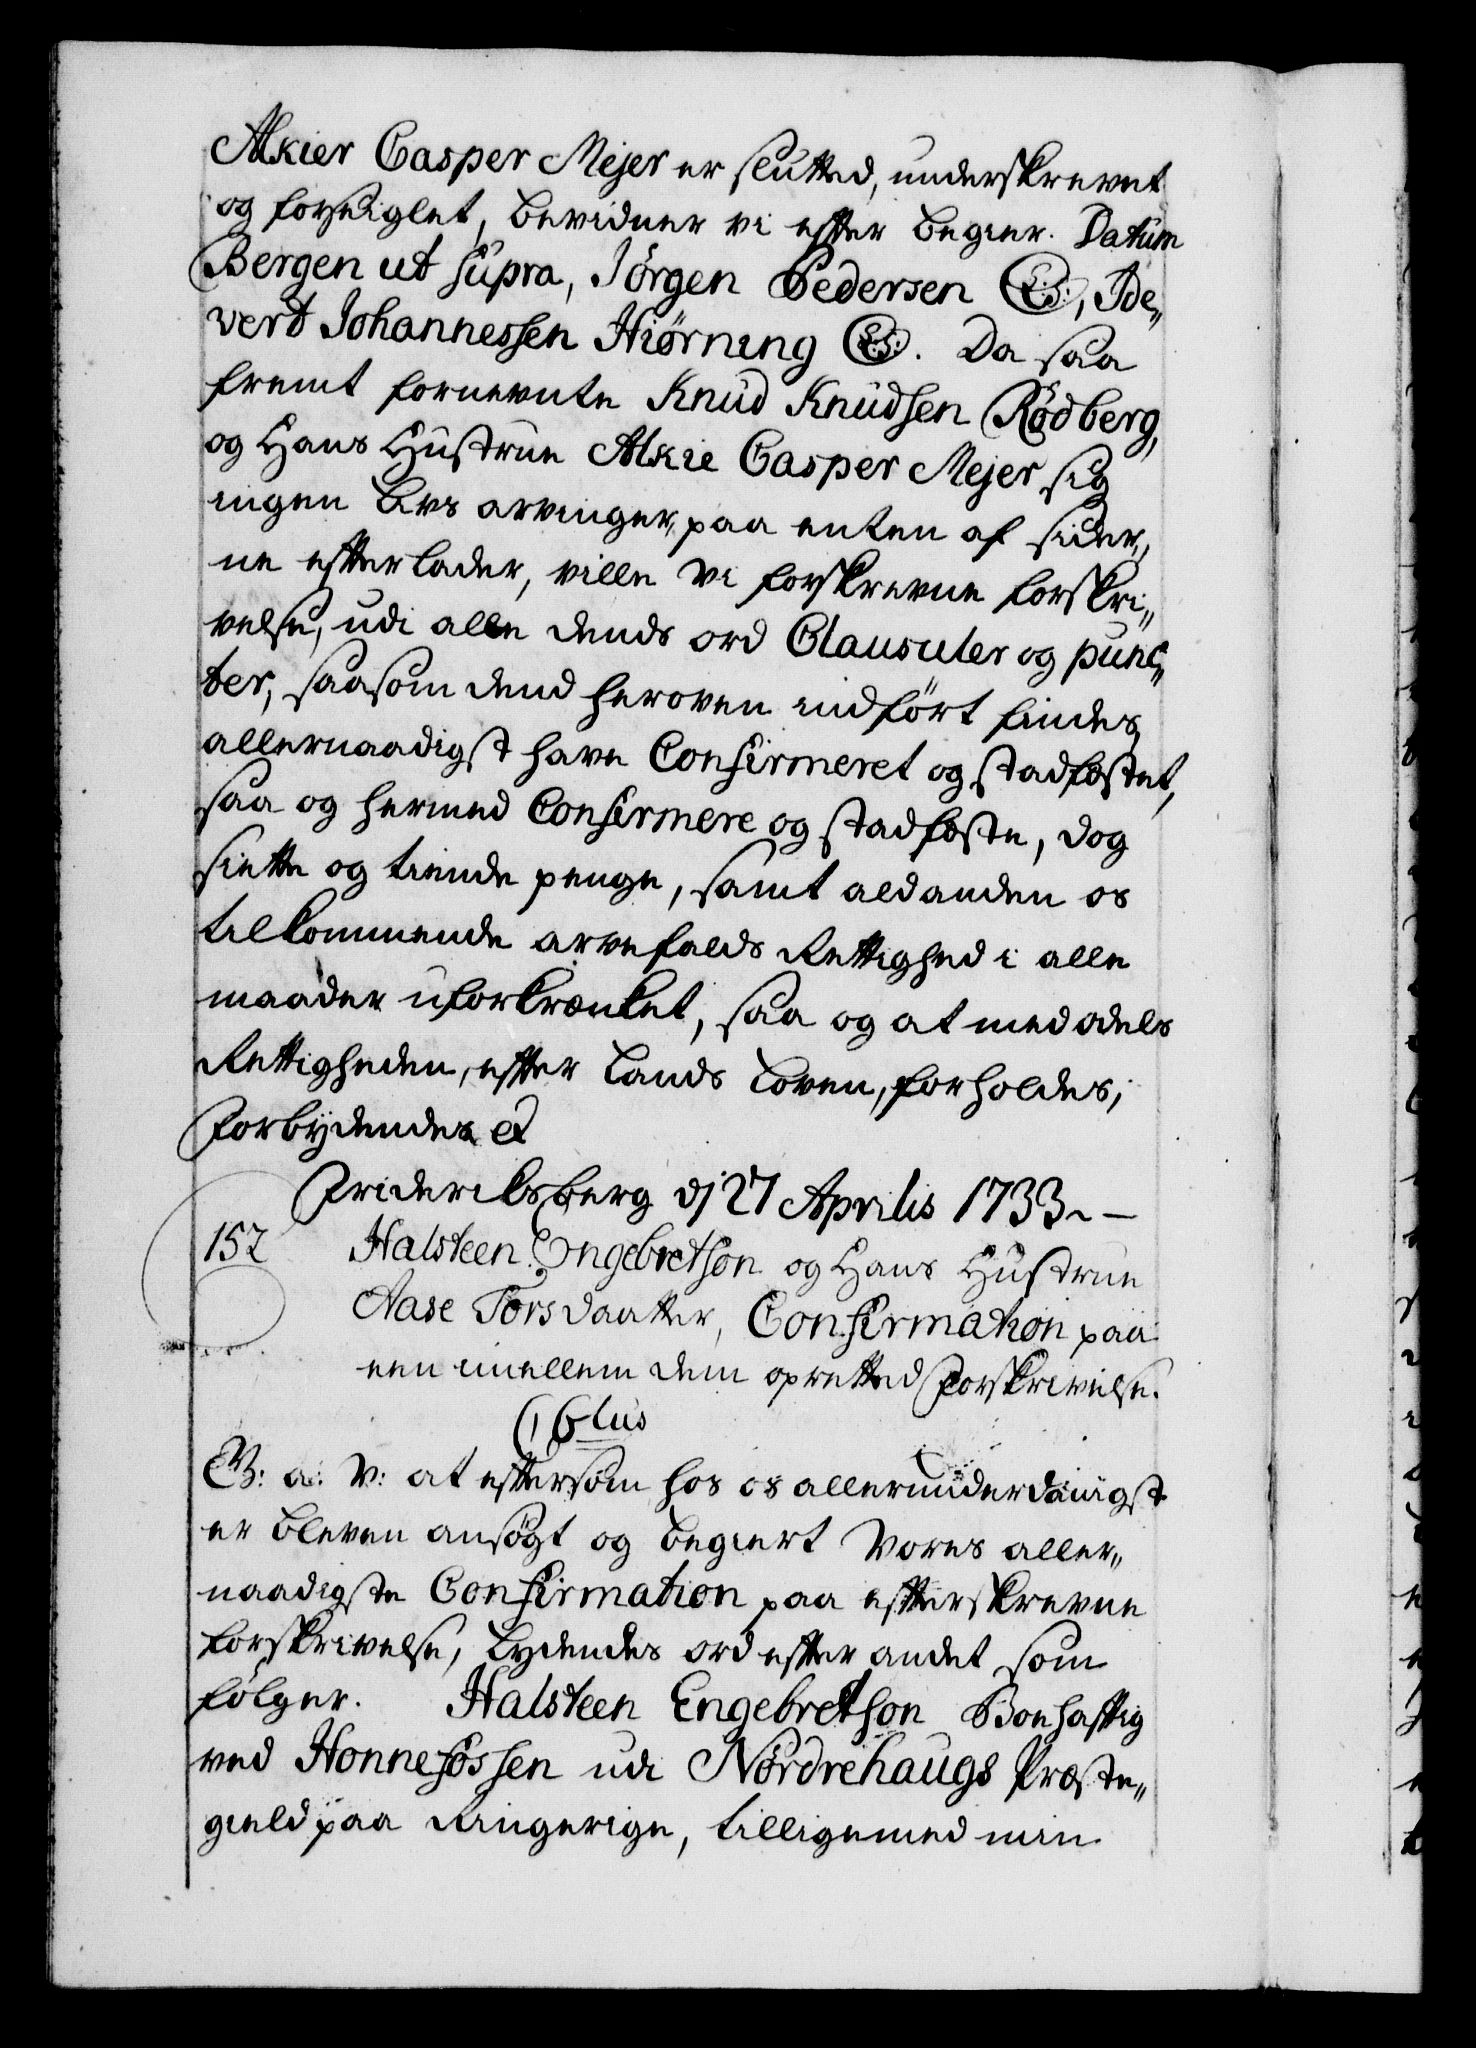 Alkier Casper Mejer er slutted, underskrevet
og forseiglet, bevidner vi efter begier. Datum
Bergen ut supra, Jørgen Pedersen (L.S.), Ide„
vert Johannessen Hiørning (L.S.). Da saa
fremt fornevnte Knud Knudsen Rødberg,
og Hans Hustrue Alkie Casper Mejer sig
ingen Livs arvinger, paa enten af sider„
ne efterlader, ville vi forskrevne forskri„
velse, udi alle dends ord Clausuler og punc„
ter, saasom dend heroven indført findes,
allernaadigst have Confirmeret og stadfæstet,
saa og hermed Confirmere og stadfæste, dog
siette og tiende penge, samt ald anden os
tilkommende arvefalds Rettighed i alle
maader uforkrænket, saa og at med odels
Rettigheden, efter Lands Loven, forholdes;
Forbydendes et
Friderichsberg dj 27 Aprilis 1733. —
152 Halsteen Engebretson og Hans Hustrue
Aase Torsdaatter, Confirmation paa
een imellem dem opretted Forskrivelse.
G: a: V: at eftersom hos os allerunderdanigst
er bleven ansøgt og begiert Vores aller„
naadigste Confirmation paa efterskrevne
forskrivelse, lydendes ord efter andet som
følger. Halsteen Engebretson Boehaftig
ved Honnefossen udi Nordrehaugs Præste„
gield paa Ringerige, tilligemed min